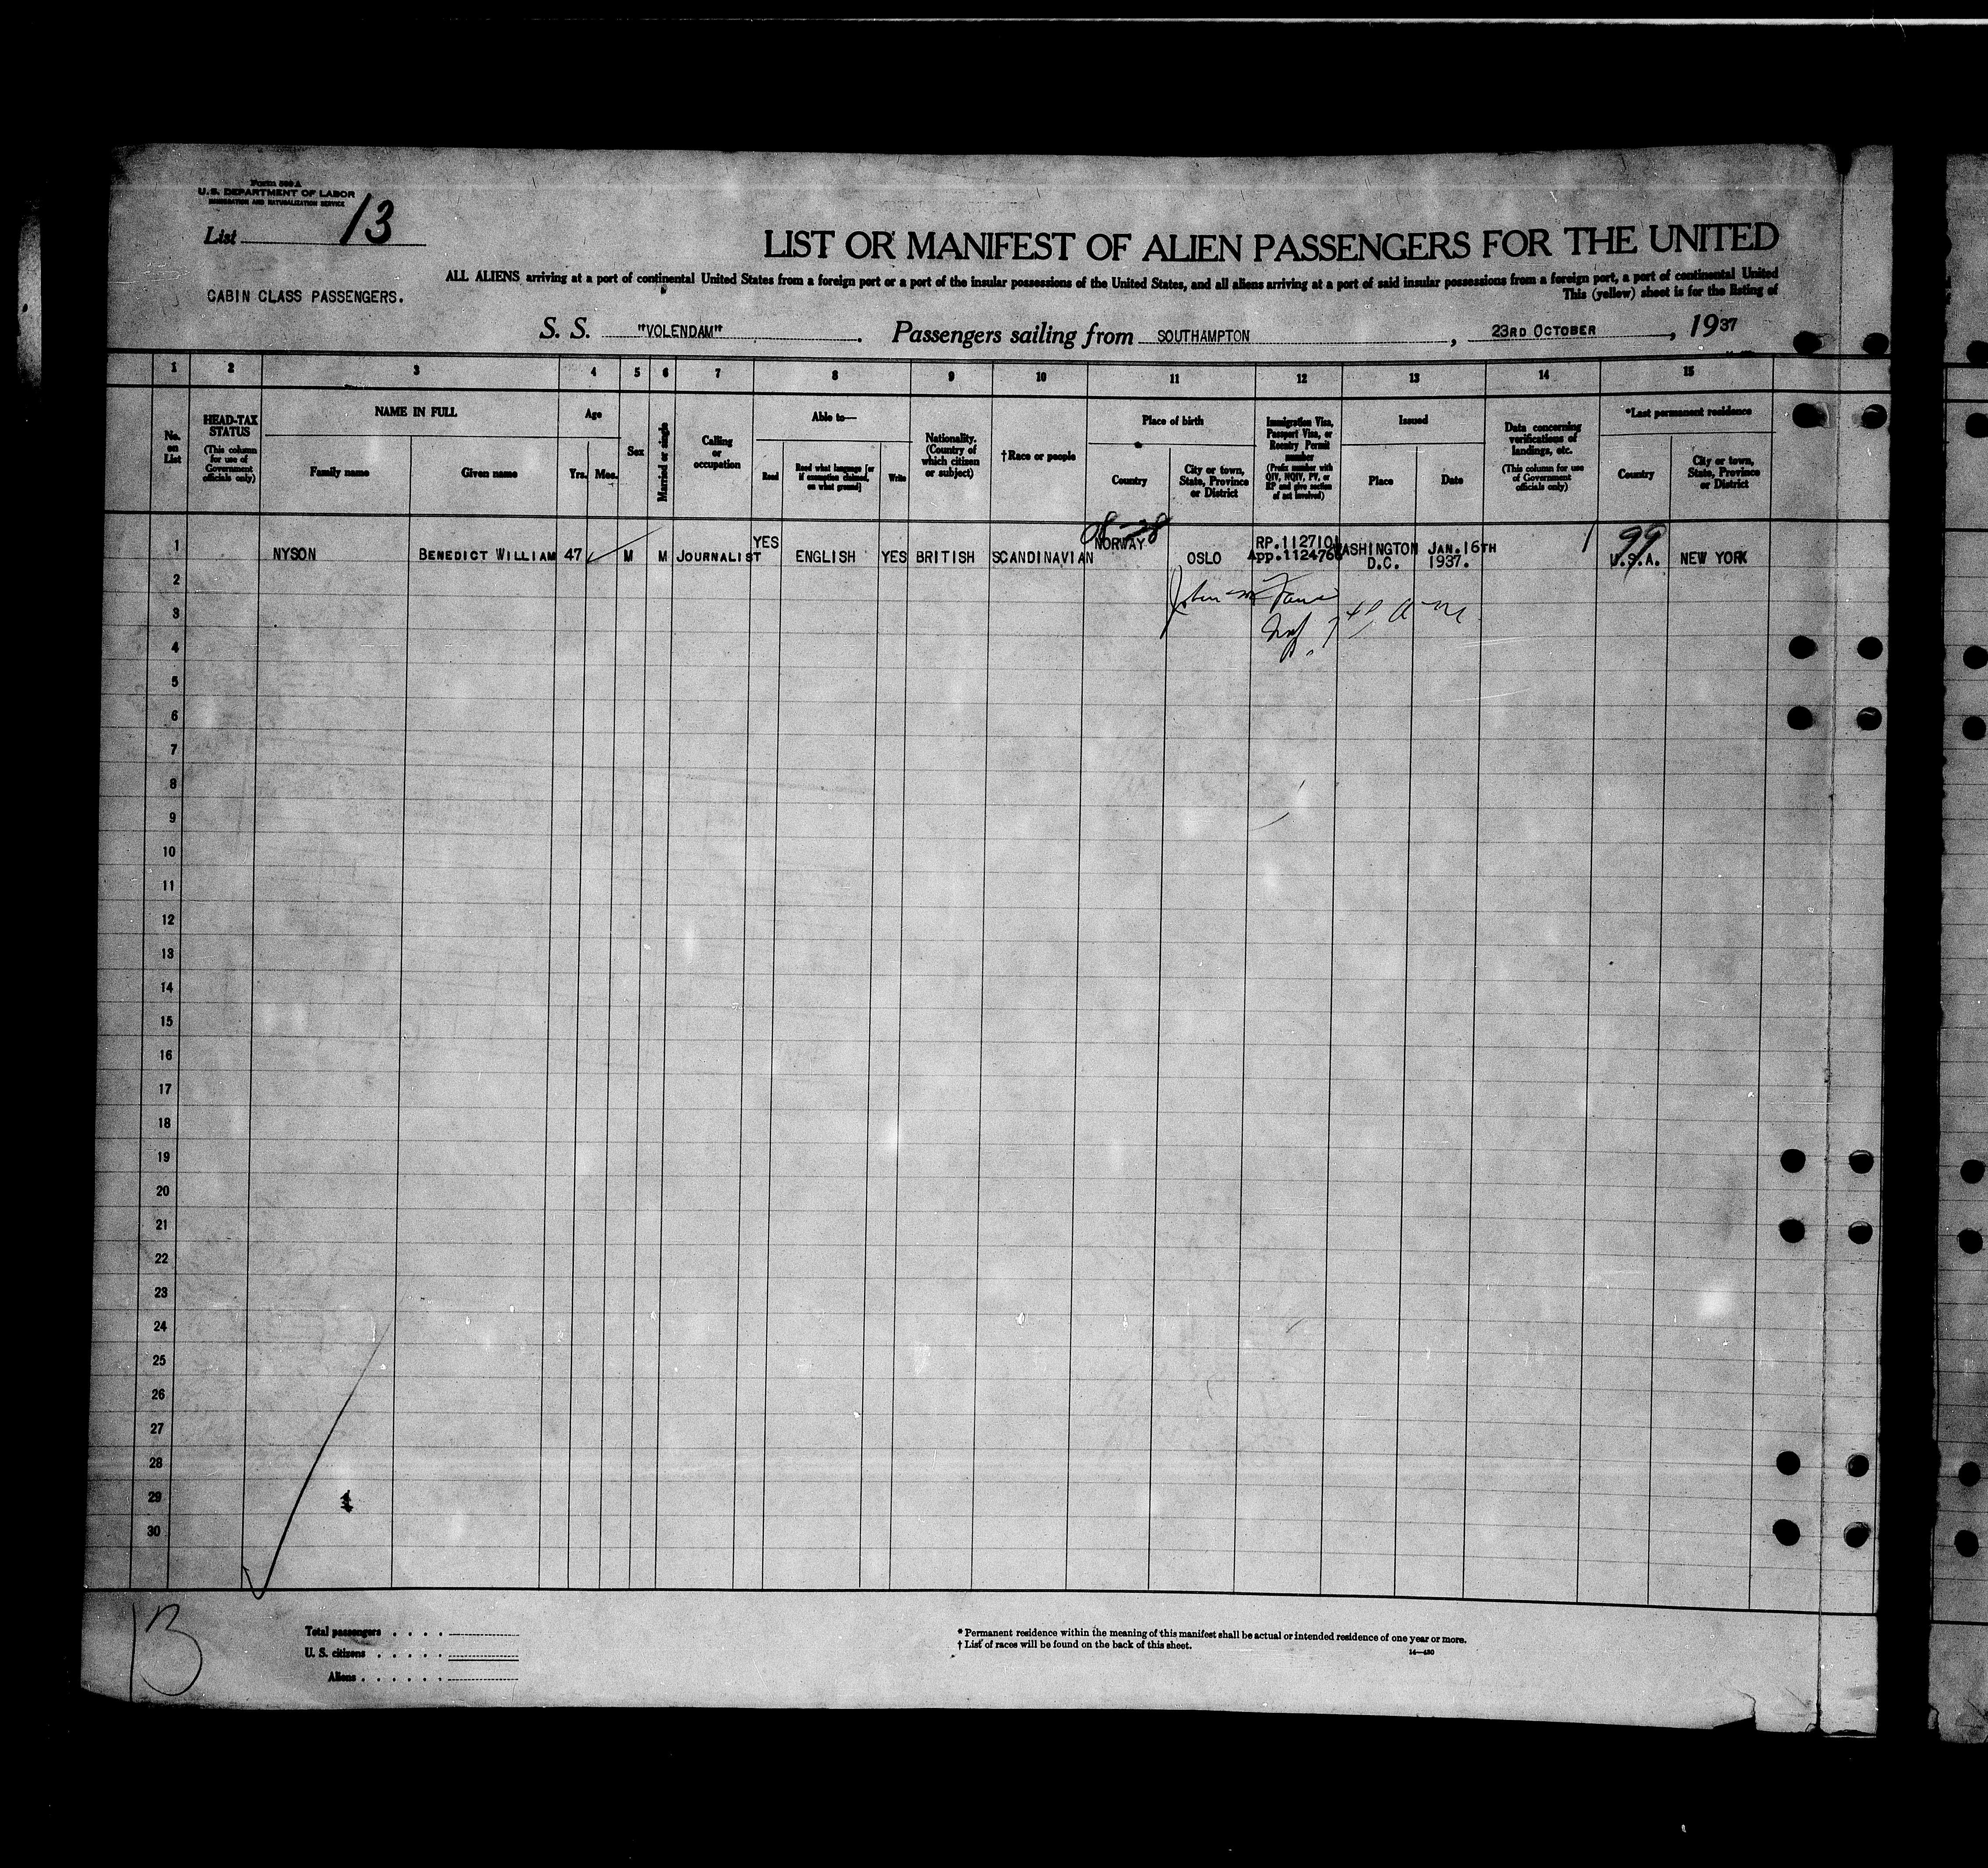 Form 500 A
U.S. DEPARTMENT OF LABOR
IMMIGRATION AND NATURALIZATION SERVICE
List 13
LIST OR MANIFEST OF ALIEN PASSENGERS FOR THE UNITED
ALL ALIENS arriving at a port of continental United States from a foreign port or a port of the insular possessions of the United States, and all aliens arriving at a port of said insular possessions from a foreign port, a port of continental United
CABIN CLASS PASSENGERS.
This (yellow) sheet is for the listing of
S. S. "VOLENDAM". Passengers sailing from SOUTHAMPTON, 23RD OCTOBER, 1937
1 2 3 4 5 6 7 8 9 10 11 12 13 14 15
No. on List
HEAD-TAX STATUS
(This column for use of Government officials only)
NAME IN FULL
Family name
Given name
Age
Yrs. Mos.
Sex
Married or single
Calling or occupation
Able to—
Read
Read what language [or if exemption claimed, on what ground]
Write
Nationality. (Country of which citizen or subject)
†Race or people
Place of birth
Country
City or town, State, Province or District
Immigration Visa, Passport Visa, or Reentry Permit number
(Prefix number with QIV, NQIV, PV, or RP and give section of act involved)
Issued
Place
Date
Data concerning verifications of landings, etc.
(This column for use of Government officials only)
*Last permanent residence
Country
City or town, State, Province or District
1 NYSON BENEDICT WILLIAM 47 M M JOURNALIST YES ENGLISH YES BRITISH SCANDINAVIAN NORWAY OSLO RP.1127101 App.112476 WASHINGTON D.C. JAN.16TH 1937. 1 99 U.S.A. NEW YORK
2
John
3
4
5
6
7
8
9
10
11
12
13
14
15
16
17
18
19
20
21
22
23
24
25
26
27
28
29
30
13
Total passengers
U. S. citizens
Aliens
* Permanent residence within the meaning of this manifest shall be actual or intended residence of one year or more.
† List of races will be found on the back of this sheet.
14—430